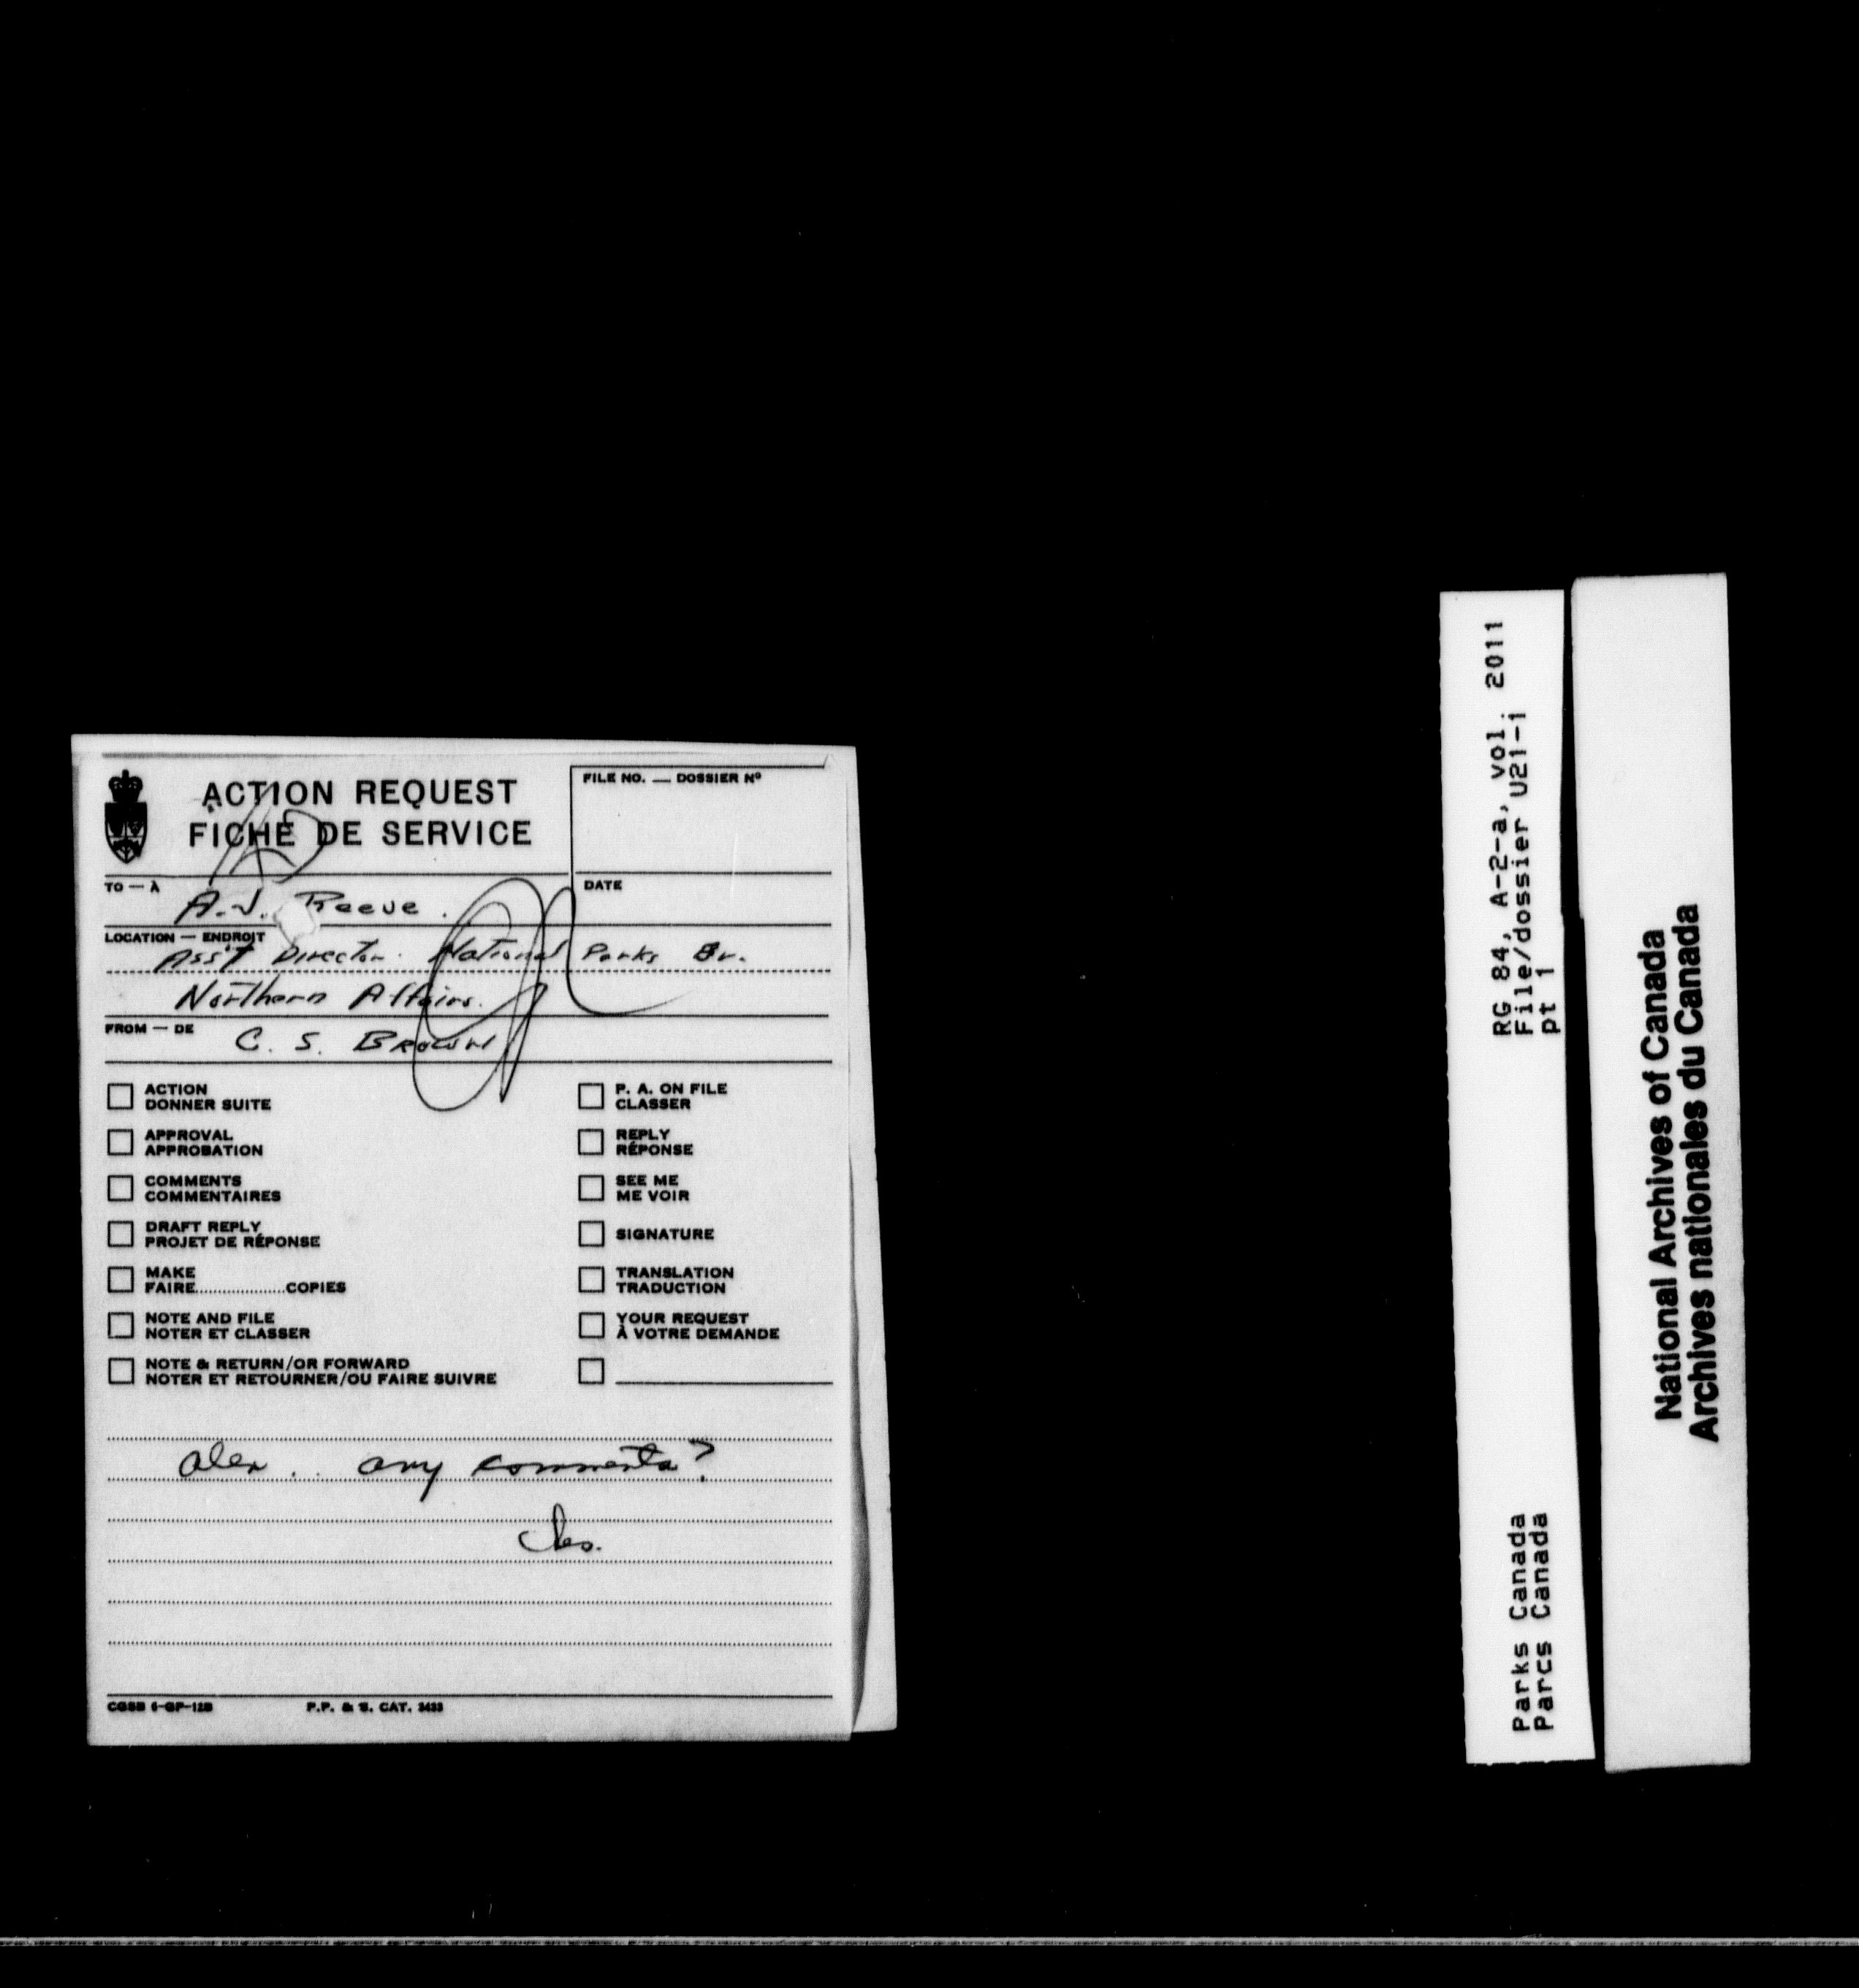 ACTION REQUEST
FICHE DE SERVICE
FILE NO. — DOSSIER Nº
TO — À
A.J. Reeve.
DATE
LOCATION — ENDROIT
Ass't Director. National Parks Br.
Northern Affairs.
FROM — DE
C. S. BROWN
ACTION
DONNER SUITE
APPROVAL
APPROBATION
COMMENTS
COMMENTAIRES
DRAFT REPLY
PROJET DE RÉPONSE
MAKE
FAIRE....................COPIES
NOTE AND FILE
NOTER ET CLASSER
NOTE & RETURN/OR FORWARD
NOTER ET RETOURNER/OU FAIRE SUIVRE
P. A. ON FILE
CLASSER
REPLY
RÉPONSE
SEE ME
ME VOIR
SIGNATURE
TRANSLATION
TRADUCTION
YOUR REQUEST
À VOTRE DEMANDE
Alex.. any comments?
CGSB 6-GP-12B P.P. & S. CAT. 3433
RG 84, A-2-a, vol. 2011
File/dossier U21-1
pt 1
Parks Canada
Parcs Canada
National Archives of Canada
Archives nationales du Canada